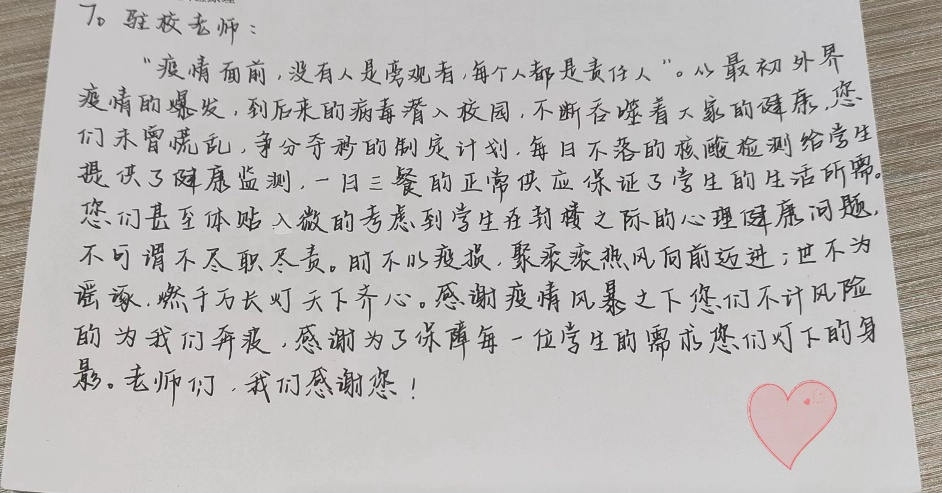 To 驻校老师:
"疫情面前,没有人是旁观者,每个人都是责任人"。从最初外界
疫情的爆发,到后来的病毒潜入校园,不断吞噬着大家的健康,您
们未曾慌乱,争分夺秒的制定计划,每日不落的核酸检测给学生
提供了健康监测,一日三餐的正常供应保证了学生的生活所需。
您们甚至体贴入微的考虑到学生在封楼之际的心理健康问题,
不可谓不尽职尽责。时不以疫损,聚滚滚热风向前迈进;世不为
谣诼,燃千万长灯天下齐心。感谢疫情风暴之下您们不计风险
的为我们奔波,感谢为了保障每一位学生的需求您们灯下的身
影。老师们,我们感谢您!